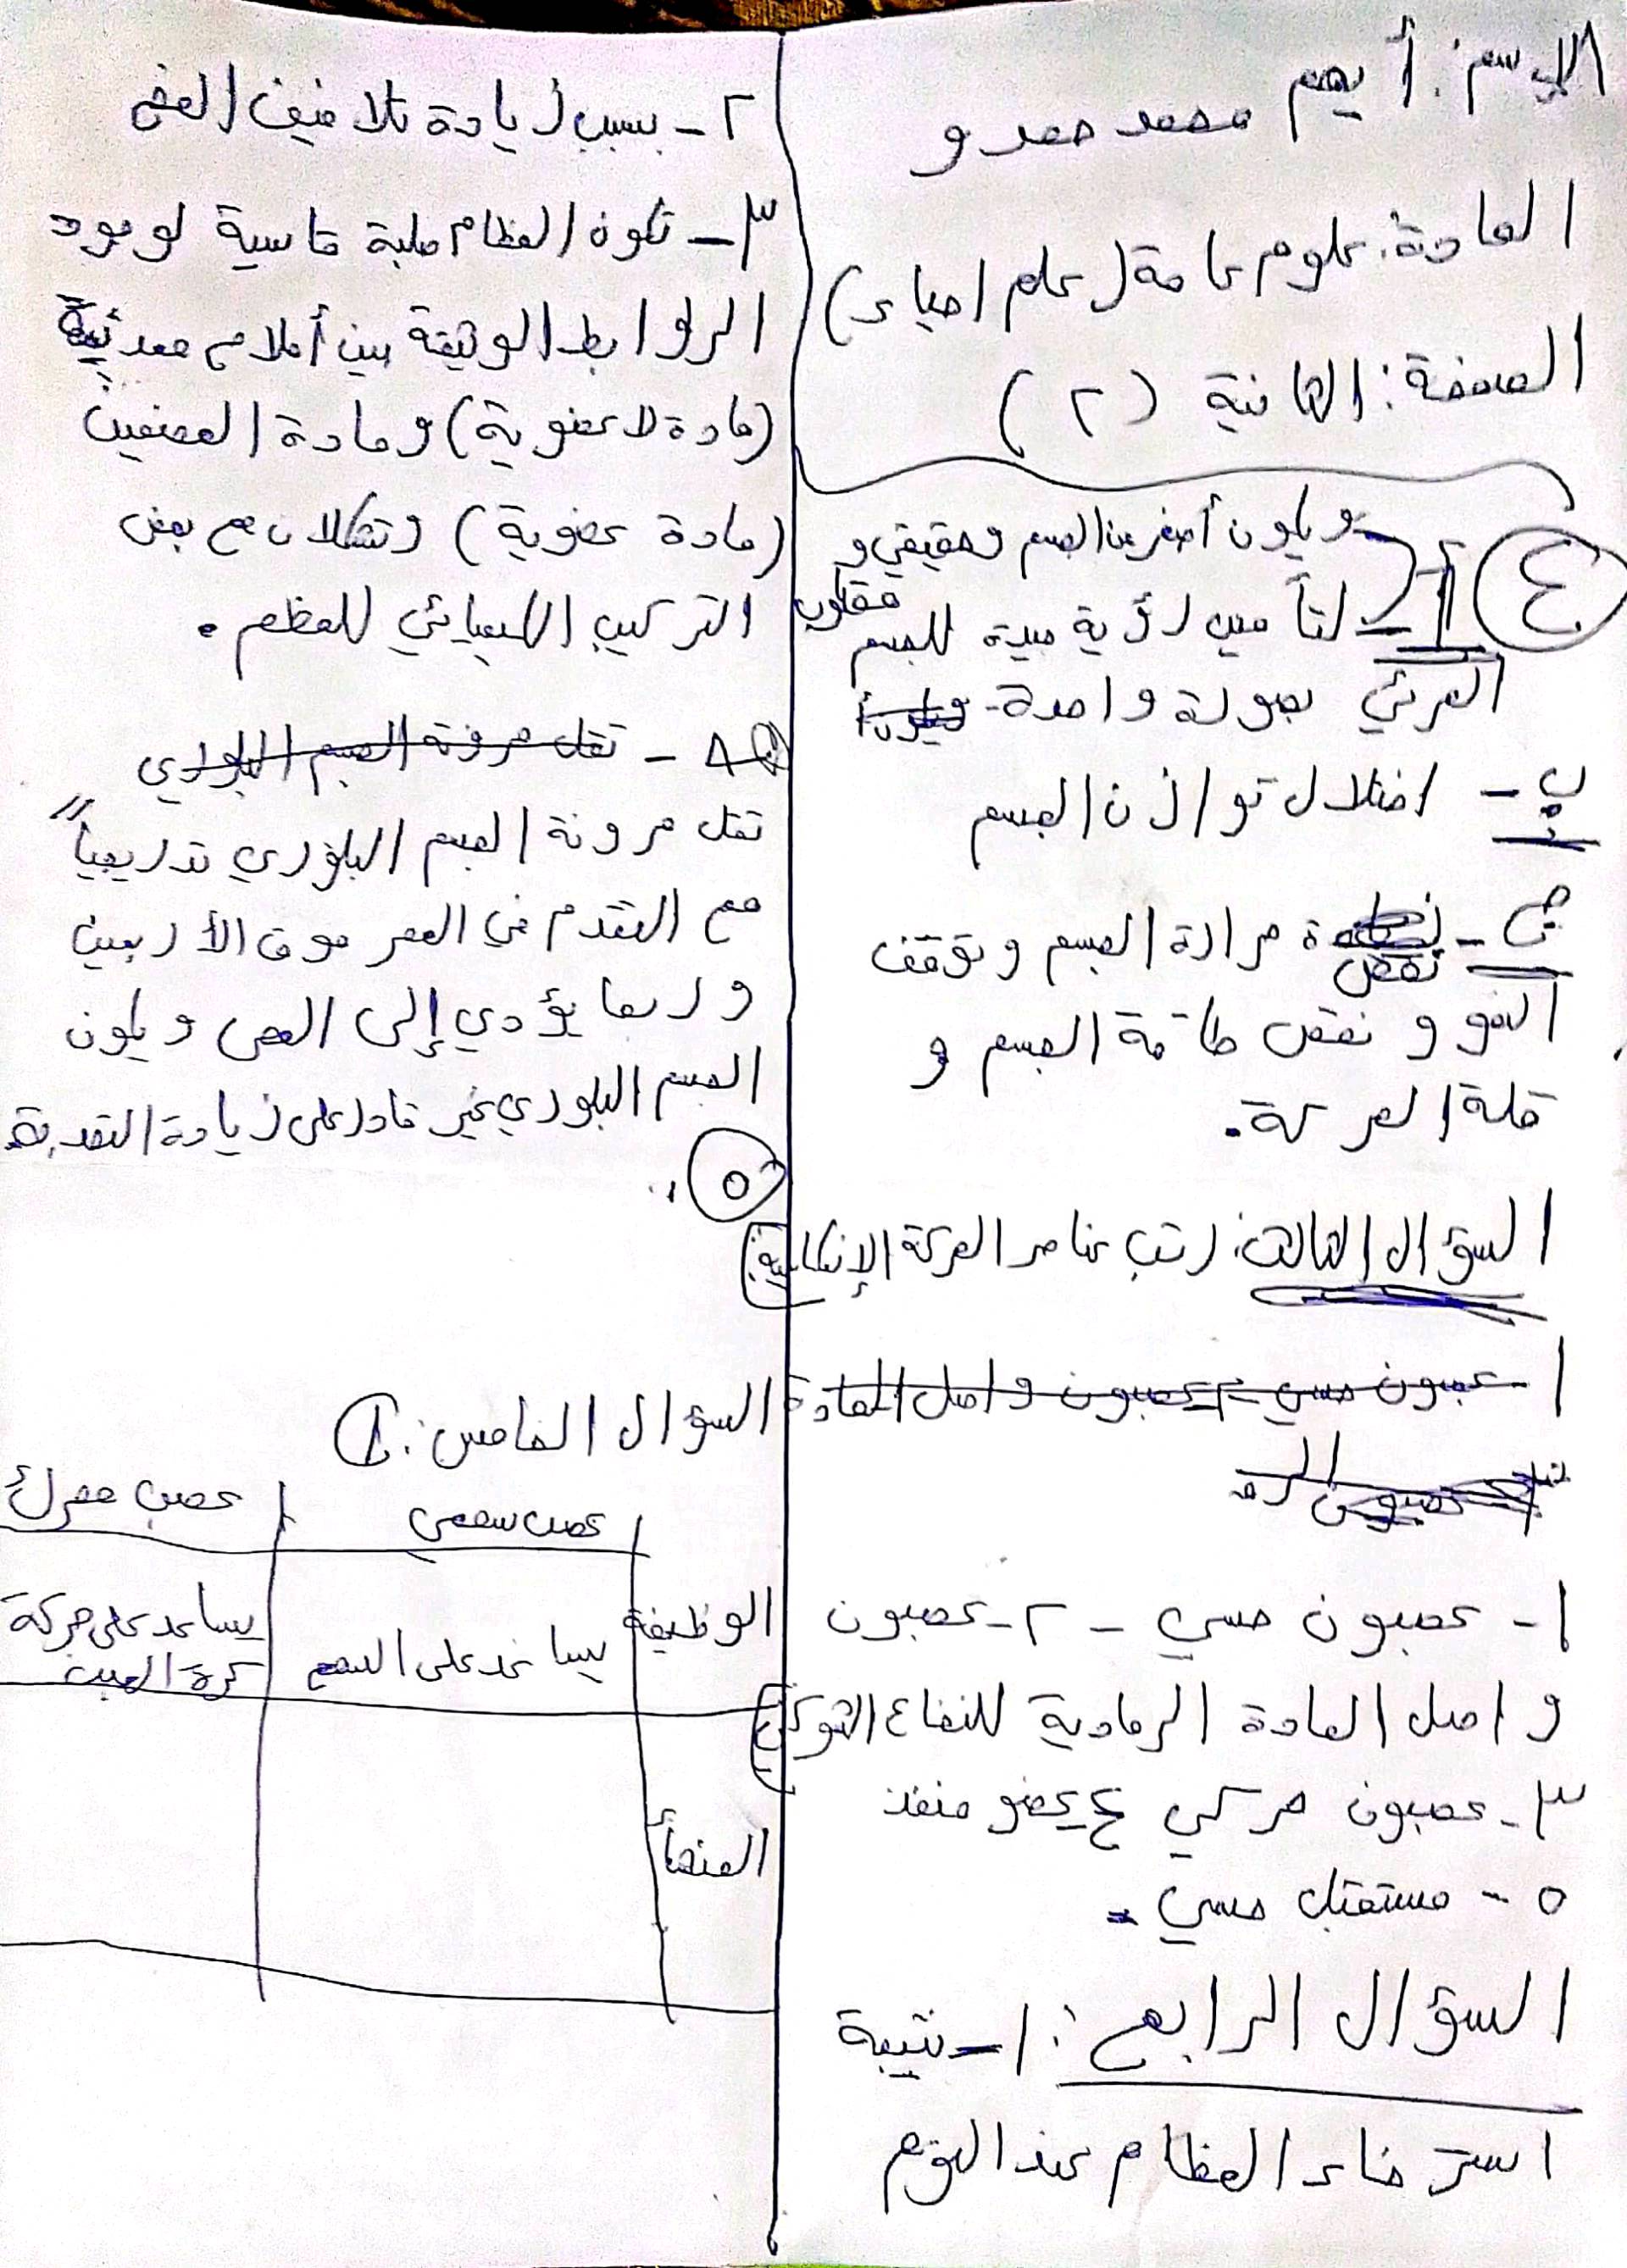 الإسم: أيهم محمد حمدو
المادة: علوم عامة (علم احياء)
الصفحة: الثانية (٢)
٤
ويكون أصغر من الجسم وحقيقي و
مقلوب
أ - لتأمين رؤية جيدة للجسم
المرئي بصورة واحدة.
ب - اختلال توازن الجسم
ج - نقص حرارة الجسم وتوقف
النمو و نقص طاقة الجسم و
قلة الحركة.
السؤال الثالث: رتب عناصر الحركة الإنعكاسية:
١ - عصبون حسي - ٢ - عصبون واصل المادة
١ - عصبون حسي - ٢ - عصبون
واصل المادة الرمادية للنخاع الشوكي
٣ - عصبون حركي ٤ عضو منفذ
٥ - مستقبل حسي.
السؤال الرابع: ١ - نتيجة
استرخاء العظام عند النوم
٢ - بسبب زيادة تلافيف المخ
٣ - تكون العظام صلبة قاسية لوجود
الروابط الوثيقة بين أملاح معدنية
(مادة لا عضوية) ومادة العضفين
(مادة عضوية) وتشكلان مع بعض
التركيب الكيميائي للعظم.
٨ - تقل مرونة الجسم البلوري
تقل مرونة الجسم البلوري تدريجياً
مع التقدم في العمر فوق الأربعين
وربما يؤدي إلى العمى ويكون
الجسم البلوري غير قادر على زيادة التحدب
٥
السؤال الخامس: ١
عصب سمعي عصب محرك
الوظيفة يساعد على السمع يساعد على حركة
كرة العين
المنشأ